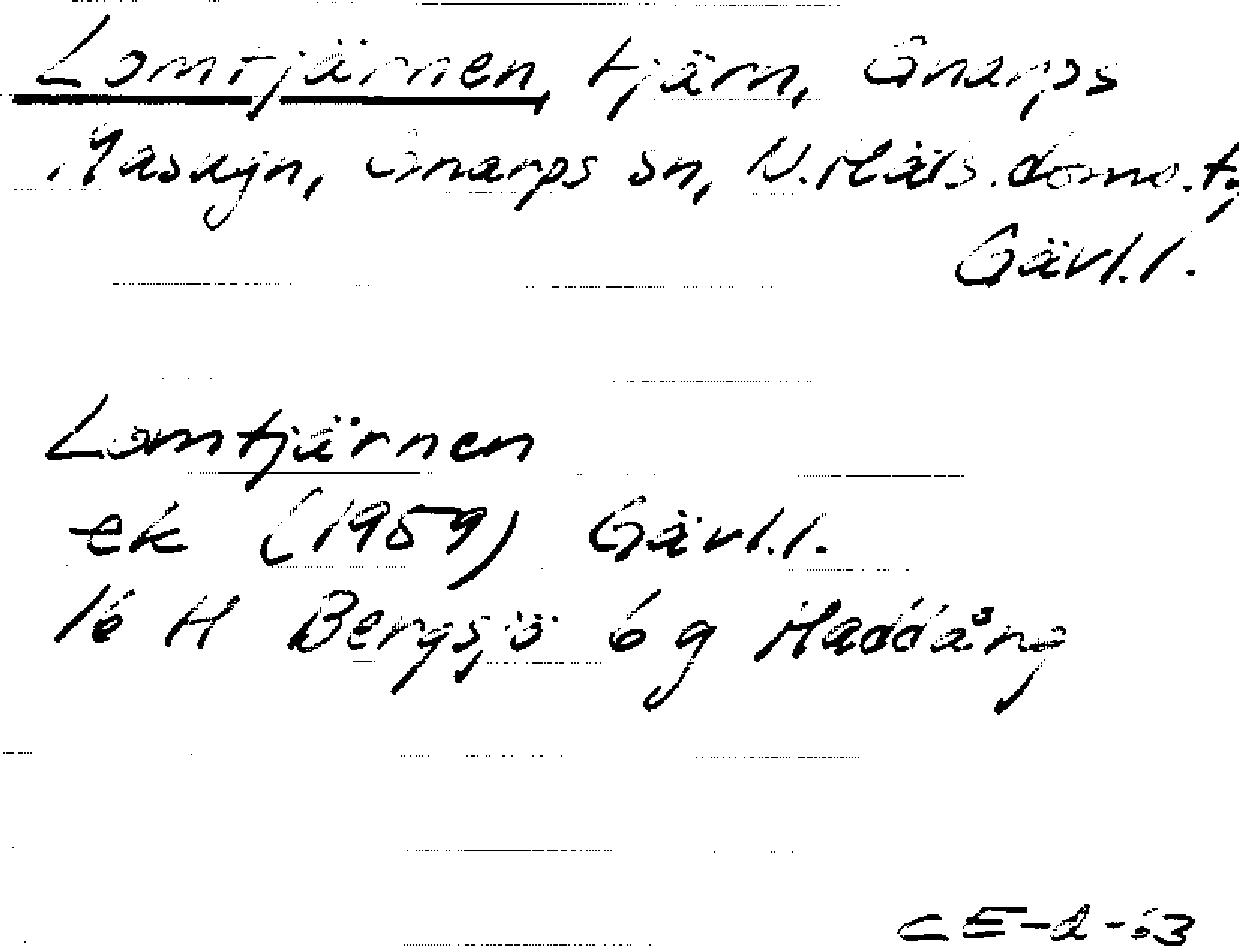 Lomtjärnen, tjärn, Gnarps
Masugn, Gnarps sn, N. Häls. doms.t.,
Gävl.l.
Lomtjärnen
ek (1959) Gävl.l.
16 H Bergsjö 6 g Haddång
CE-2-63